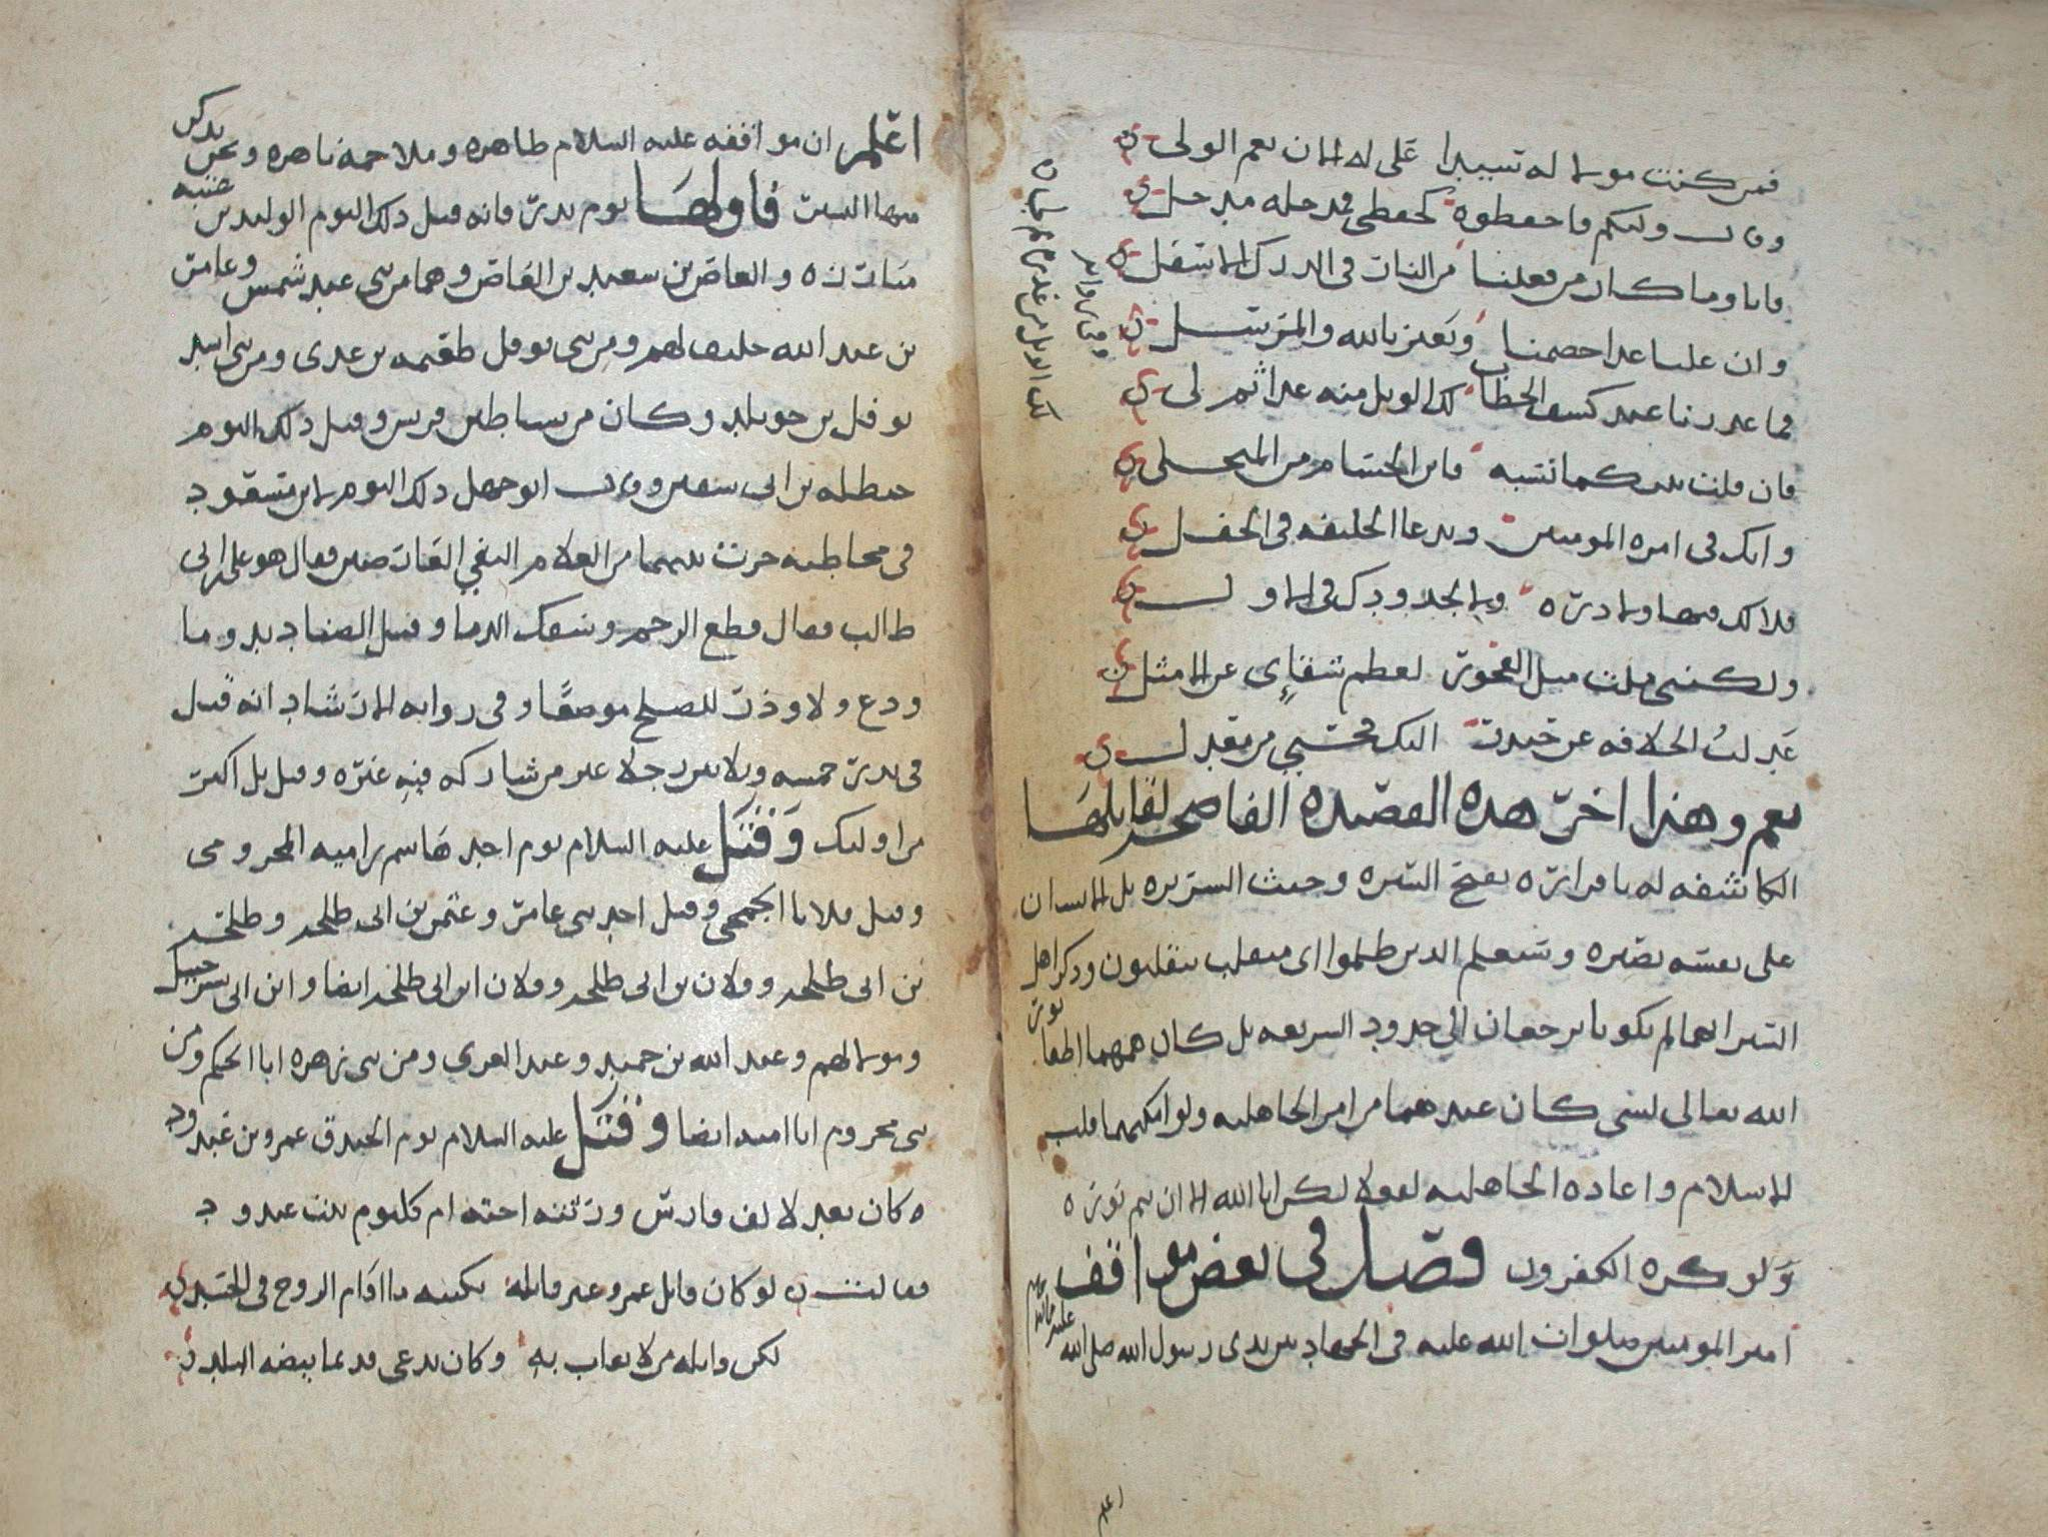 فمن كنت مولا له سيدا علي له الان نعم الولي
وقال وليكم فاحفظوه كحفظي فمدخله مدخلي
فانا وما كان من فعلنا من النار في الدرك الاسفل
وان عليا غدا خصمنا ويعتز بالله والمرسل
فما عذرنا عند كشف الغطا لك الويل منه غدا ثم لي
فان قلت بينكما نسبه فاين الحسام من المنجلي
وانك في امره المومنين ودعا الخليفه في المحفل
فلا لك فيها ولا ذره ولا لجدودك في الاول
ولكنني قلت قبل
لعظم شقاءي عن الامثل
الخلافه عن حيدر اليك
نعم وهذا اخر هذه القصيده الفاضحه لقايلها
الكاشفه له بامراره بقبح السيره وخبث السريره بل الانسان
على نفسه بصيره وسيعلم الذين ظلموا اي منقلب ينقلبون وذكر اهل
السير انهما لم يكونا يرجعان الى حدود الشريعه بل كان همهما اطفا نور
الله تعالى لشي كان عندهما من امر الجاهليه ولو امكنهما قلب
الاسلام واعاده الجاهليه لفعلا لكن ابا الله الا ان يتم نوره
ولو كره الكفرون فصل في بعض مواقف
امير المومنين صلوات الله عليه في الجهاد بين يدي رسول الله صلى الله
عليه واله
وفي روايه
لك الويل من غدا
اعلم
اعلم ان مواقفه عليه السلام ظاهره وملاحمه باهره ونحن نذكر
منها اليسير فاولها يوم بدر فانه قتل ذلك اليوم الوليد بن عتبه
مبارزه والعاص بن سعيد بن العاص وهما من بني عبد شمس وعامر
بن عبد الله حليف لهم ومن بني نوفل طعيمه بن عدي ومن بني اسد
نوفل بن خويلد وكان من شياطين قريش وقتل ذلك اليوم
حنظله بن ابي سفين وقال ابو جهل ذلك اليوم لابن مسعود
في مخاطبه جرت بينهما من الغلام
فقال هو علي بن ابي
طالب فقال قطع الرحم وسفك الدما وقتل الصناديد وما
ودع ولا وذر للصلح موضعا وفي روايه الارشاد انه قتل
في بدر خمسه وثلاثين رجلا غير من شاركه فيه غيره وقيل بل اكثر
من اوليك وقتل عليه السلام يوم احد هاشم بن اميه المخزومي
وقتل فلانا الجمحي وقتل احد بني عامر وعثمن بن ابي طلحه وطلحه
بن ابي طلحه وفلان بن ابي طلحه وفلان ابن ابي طلحه ايضا وابن ابي شرحبيل
ومولا لهم وعبد الله بن حميد وعبد العزي ومن بني زهره ابا الحكم ومن
بني مخزوم ابا اميه ايضا وقتل عليه السلام يوم الخندق عمرو بن عبد ود
كان يعد لالف فارس ورثته اخته ام كلثوم بنت عبد ود
فقالت لو كان قاتل عمرو غير قاتله بكيته ما اقام الروح في الجسد
لكن قاتله من لا يعاب به وكان يدعى قديما بيضه البلد